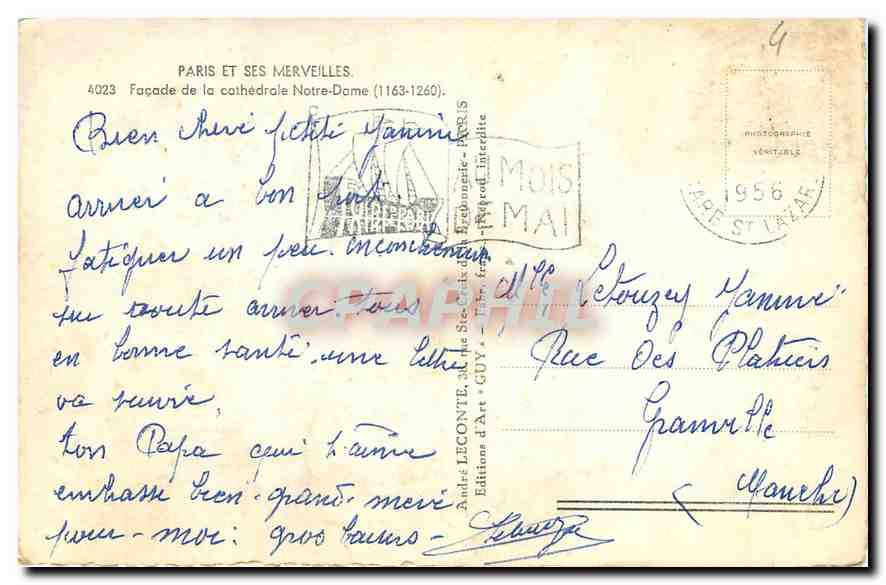 4
PARIS ET SES MERVEILLES.
4023 Façade de la cathédrale Notre-Dame (1163-1260).
Bien cheré petite Yanine
arriver a bon port.
fatiguer un peu.
sur route arriver tous
en bonne santé. une lettre
va suivre,
ton Papa qui t'aime
embasse bien-grand-meré
pour-moi: gros baisers-
Letouzey
André LECONTE, 38, rue Ste-Croix de la Bretonnerie - PARIS
Editions d'Art "GUY" - Fabr. franç. - Reprod. interdite
MOIS
MAI
PARIS
PHOTOGRAPHIE
VÉRITABLE
1956
GARE ST LAZARE
Mlle Letouzey Yanine
Rue Des Platriers
Granville
(Manche)
CPAPHIL